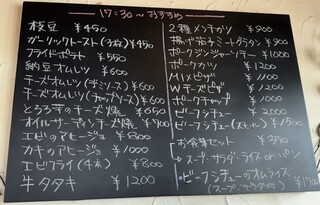 17:30〜おすすめ
枝豆 ¥450
ガーリックトースト(3枚)¥450
フライドポテト ¥550
納豆オムレツ ¥600
チーズオムレツ(デミソース)¥600
チーズオムレツ(チャップソース)¥600
とろろ芋のチーズ焼 ¥650
オイルサーディンチーズ焼 ¥700
エビのアヒージョ ¥800
カキのアヒージョ ¥1000
エビフライ(4本) ¥800
牛タタキ ¥1200
2種メンチカツ ¥900
揚げ茄子ミートグラタン ¥900
ポークジンジャーソテー ¥1000
ポークカツ ¥1200
MIXピザ ¥1100
Wチーズピザ ¥1200
ポークチャップ ¥1000
ビーフシチュー ¥2000
ビーフシチュー(スモール) ¥1500
お食事セット ¥350
スープ・サラダ・ライス or パン
ビーフシチューのオムライス
(スープ、サラダ付) ¥1700